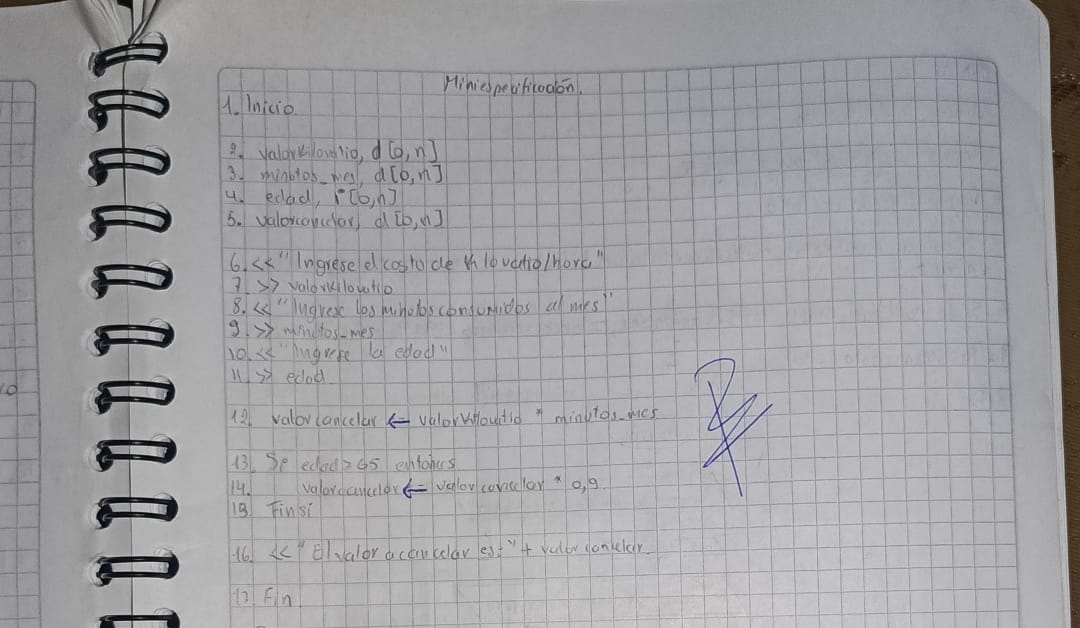 Miniespecificación.
1. Inicio
2. valorkilovatio, d[0,n]
3. minutos_mes, d[0,n]
4. edad, i[0,n]
5. valorcancelar, d[0,n]
6. << "Ingrese el costo de kilovatio/hora"
7. >> valorkilovatio
8. << "Ingrese los minutos consumidos al mes"
9. >> minutos_mes
10. << "Ingrese la edad"
11. >> edad
12. valorcancelar ← valorkilovatio * minutos_mes
13. Si edad > 65 entonces
14. valoracancelar ← valorcancelar * 0,9.
15. Finsi
16. << "El valor a cancelar es:" + valorcancelar.
17. Fin